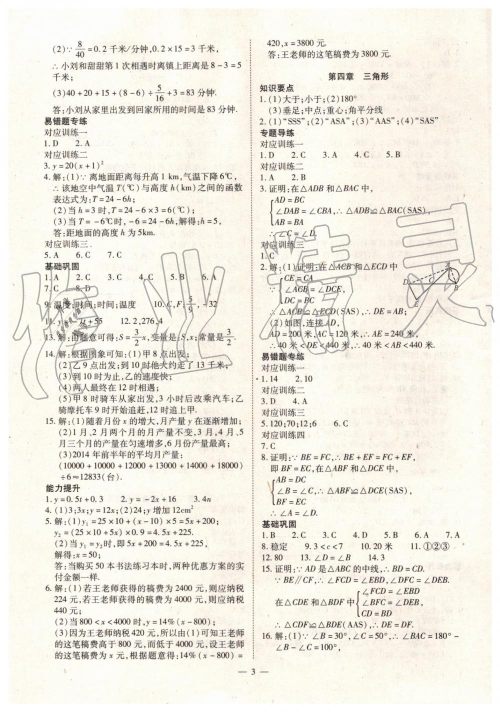 (2)∵ 8/40=0.2 千米/分钟, 0.2×15=3 千米.
∴小刘和甜甜第1次相遇时离镇上距离是 8-3=5
千米;
(3)40+20+15+(8-6)÷5/16+3=83 分钟.
答:小刘从家里出发到回家所用的时间是83分钟.
易错题专练
对应训练一
1. D 2. A
对应训练二
3. y=20(x+1)²
4. 解:(1)∵离地面距离每升高1 km,气温下降6℃,
∴该地空中气温 T(℃)与高度 h(km)之间的函数
表达式为:T=24-6h;
(2)当 h=3 时,T=24-6×3=6(℃);
(3)当 T=-6℃时,-6=24-6h,解得:h=5,
答:距地面的高度 h 为5km.
对应训练三
5. A 6. C 7. C
基础巩固
1. A 2. C 3. D 4. C 5. B 6. B
7. C 8. D
9. 温度;时间;时间;温度
12. 2,276,4
14. 解:根据图象可知:(1)甲8点出发;
(2)乙9点出发;到10时他大约走了13千米;
(3)到10时为止,乙的速度快;
(4)两人最终在12时相遇;
(5)甲8时骑车从家出发,3小时后改乘汽车;乙
骑摩托车9时开始追赶,12时追上甲.
15. 解:(1)随着月份 x 的增大,月产量 y 在逐渐增加;
(2)1月、2月两个月的月产量不变,3月,4月,5
月三个月的产量在匀速增多,6月份产量最高;
(3)2014年前半年的平均月产量:
(10000+10000+12000+13000+14000+18000)
÷6≈12833(台).
能力提升
1. y=0.5t+0.3 2. y=-2x+16 3. 4n
4. (1)3;3x;y=12x;(2)24;y增加12cm²
5. 解:(1)y₁=25×10+(x-10)×5=5x+200;
y₂=(25×10+5x)×0.9=4.5x+225.
(2)当 y₁=y₂时,即5x+200=4.5x+225.
解得:x=50;
答:当购买50本书法练习本时,两种优惠方案的实
付金额一样.
6. 解:(1)若王老师获得的稿费为2400元,则应纳税
224元,若王老师获得的稿费为4000元,则应纳税
440元;
(2)当800<x<4000时,y=14%(x-800);
(3)因为王老师纳税420元,所以由(1)可知王老师
的这笔稿费高于800元,而低于4000元,设王老师
的这笔稿费为 x 元,根据题意得:14%(x-800)=
420,x=3800元.
答:王老师的这笔稿费为3800元.
第四章 三角形
知识要点
1. (1)大于;小于;(2)180°
(3)垂足;中点;重心;角平分线
2. (1)“SSS” (2)“ASA” (3)“AAS” (4)“SAS”
专题导练
对应训练一
1. D 2. C 3. A 4. C 5. B
对应训练二
1. A 2. B
3. 证明:在△ADB 和△BAC 中,
AD=BC
∠DAB=∠CBA,∴△ADB≌△BAC(SAS),
AB=BA
∴∠C=∠D.
对应训练三
1. C
2. 解:(1)证明:在△ACB 和△ECD 中
CE=CA
∠ACB=∠DCE,
DC=BC
∴△ACB≌△ECD(SAS),∴DE=AB;
(2)如图,连接AD,
AD=200米,AC=120米,∴AE=240米,
∴40米<DE<440米,∴40米<AB<440米.
易错题专练
对应训练一
1. 14 2. 10
对应训练二
3. D 4. A
对应训练三
5. 120;70;12;6 6. C
对应训练四
7. C
8. 证明:∵BE=FC,∴BE+EF=FC+EF,
即BF=EC,在△ABF 和△DCE 中,
AB=DC
∠B=∠C,∴△ABF≌△DCE(SAS),
BF=CE
∴∠A=∠D.
基础巩固
1. B 2. C 3. C 4. D 5. B 6. C 7. B
8. 稳定 9. 3<c<7 10. 20米 11. ①②③
12. 80 13. ∠D=∠B 14. 3
15. 证明:∵AD 是△ABC 的中线,∴BD=CD.
∵BE∥CF,∴∠FCD=∠EBD,∠DFC=∠DEB.
∠FCD=∠EBD
在△CDF 和△BDE 中 ∠DFC=∠DEB,
CD=BD
∴△CDF≌△BDE(AAS),∴DE=DF.
16. 解:(1)∵∠B=30°,∠C=50°,∴∠BAC=180°-
∠B-∠C=100°,
— 3 —